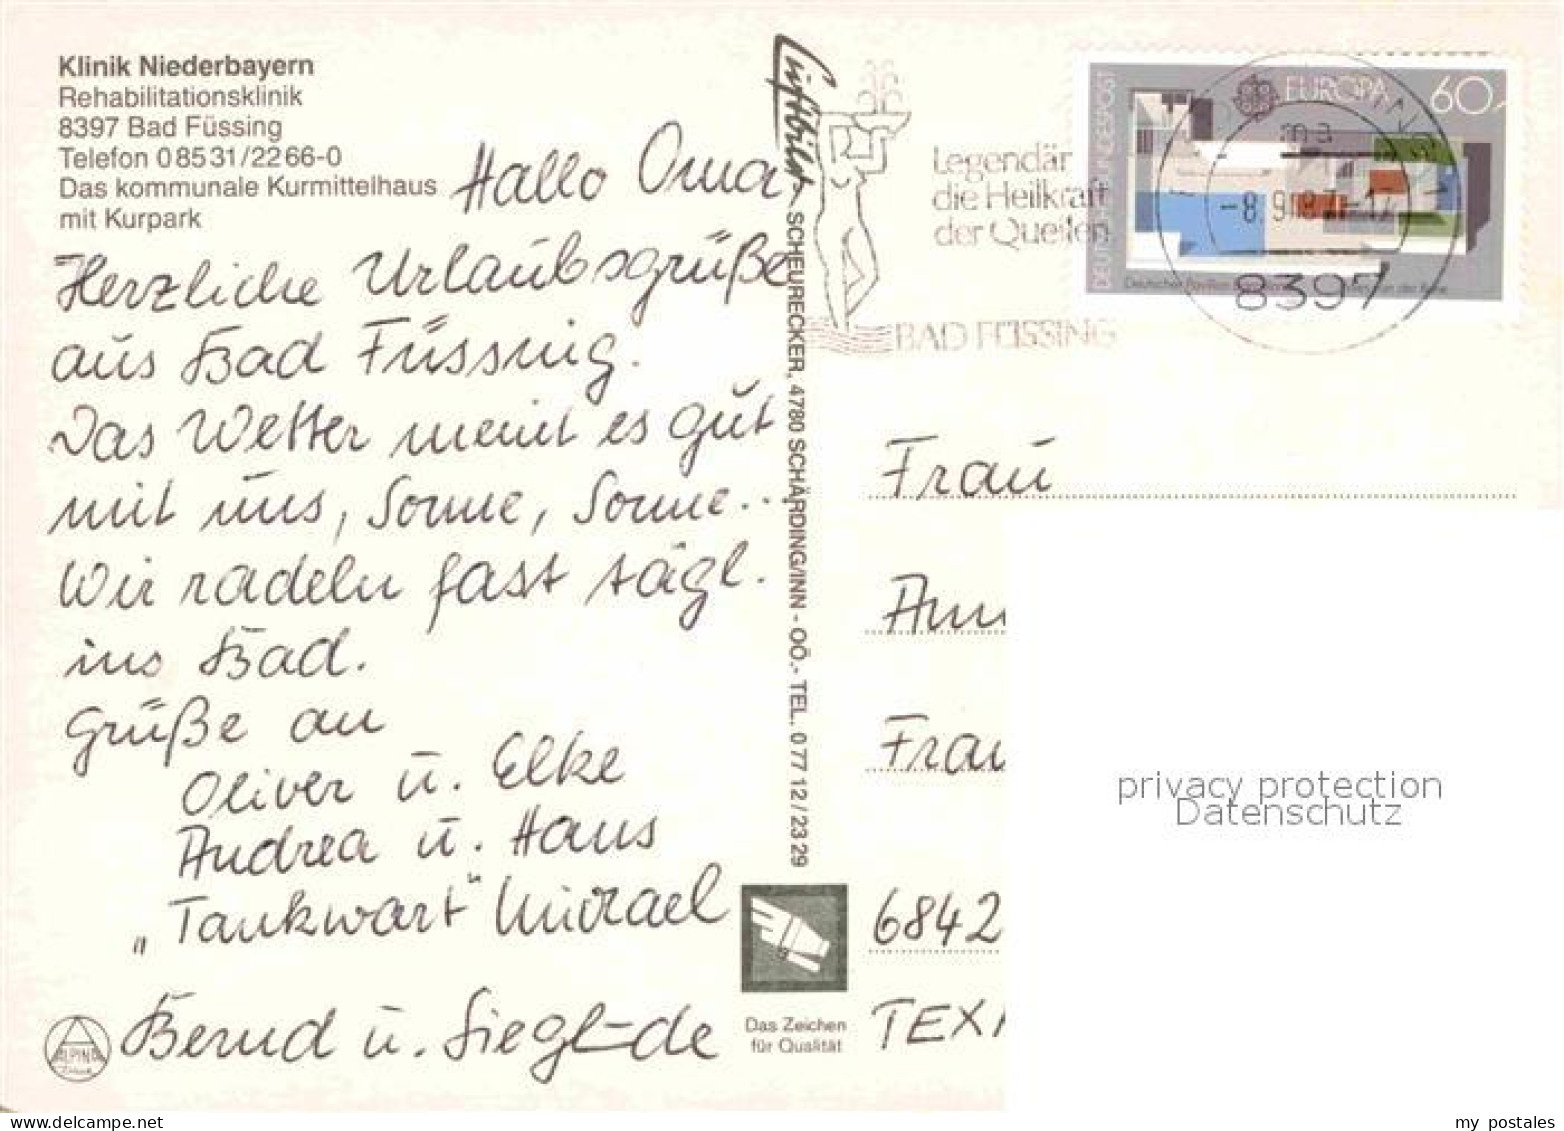 Klinik Niederbayern
Rehabilitationsklinik
8397 Bad Füssing
Telefon 08531/2266-0
Das kommunale Kurmittelhaus
mit Kurpark
Hallo Oma
Herzliche Urlaubsgrüße
aus Bad Füssing.
Das Wetter meint es gut
mit uns, Sonne, Sonne...
Wir radeln fast tägl.
ins Bad.
Grüße an
Oliver u. Elke
Andrea u. Hans
„Tankwart" Michael
Bernd u. Sieglinde
ALPINA
Druck
Luftbild
SCHEURECKER, 4780 SCHÄRDING/INN - OÖ.- TEL. 0 77 12 / 23 29
Das Zeichen
für Qualität
Legendär
die Heilkraft
der Quellen
BAD FÜSSING
DEUTSCHE BUNDESPOST
EUROPA
60
Deutscher Pavillon
-8.9.87-17
8397
Frau
Frau
6842
privacy protection
Datenschutz
my postales
www.delcampe.net